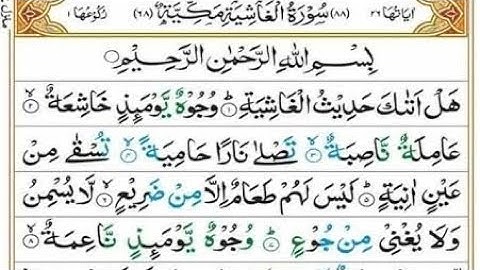 اٰيَاتُهَا ٢٦ (٨٨) سُوْرَةُ الْغَاشِيَةِ مَكِّيَّةٌ (٦٨) رُكُوْعُهَا ١
بِسْمِ اللّٰهِ الرَّحْمٰنِ الرَّحِيْمِ
هَلْ اَتٰىكَ حَدِيْثُ الْغَاشِيَةِ ۝١ وُجُوْهٌ يَّوْمَىِٕذٍ خَاشِعَةٌ ۝٢
عَامِلَةٌ نَّاصِبَةٌ ۝٣ تَصْلٰى نَارًا حَامِيَةً ۝٤ تُسْقٰى مِنْ
عَيْنٍ اٰنِيَةٍ ۝٥ لَيْسَ لَهُمْ طَعَامٌ اِلَّا مِنْ ضَرِيْعٍ ۝٦ لَّا يُسْمِنُ
وَلَا يُغْنِيْ مِنْ جُوْعٍ ۝٧ وُجُوْهٌ يَّوْمَىِٕذٍ نَّاعِمَةٌ ۝٨